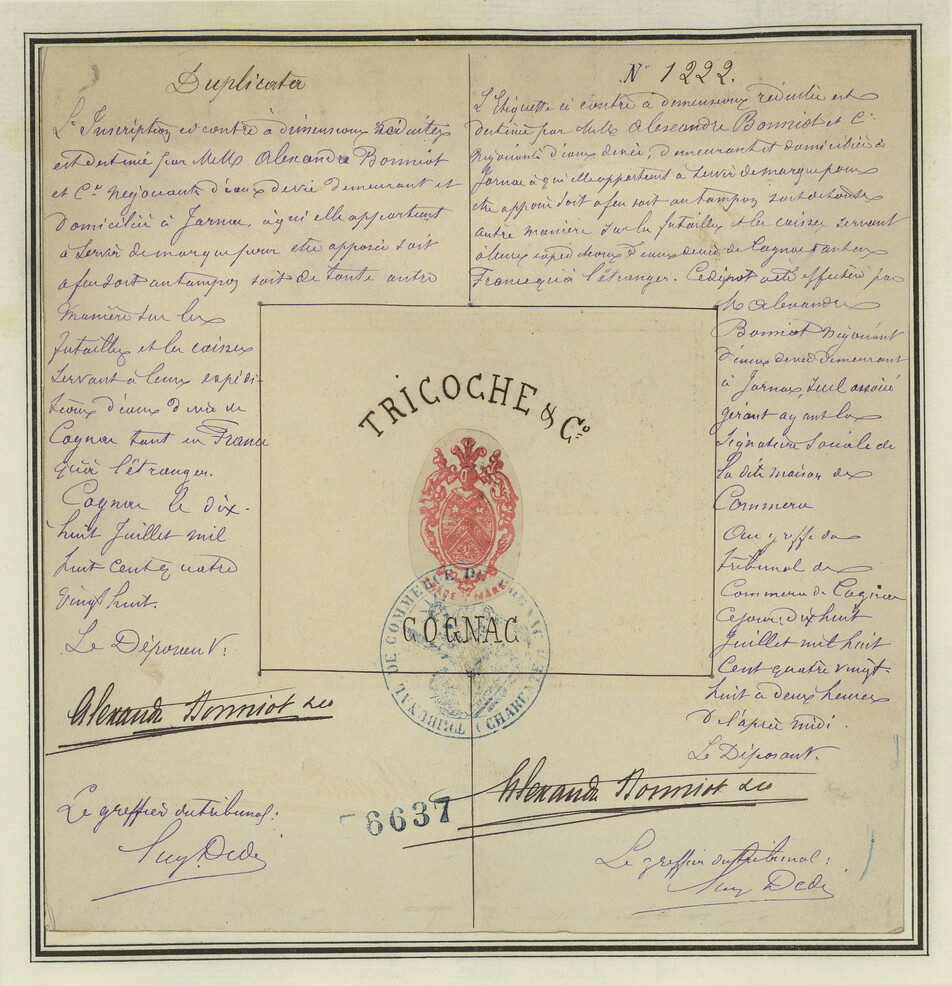 Duplicata
L'Inscription ci contre à dimensions réduites
est destiné par MM Alexandre Bonniot
et Cie négociants d'eaux de vie demeurant et
domiciliés à Jarnac, à qui elle appartient
à servir de marque pour être apposée soit
a feu soit au tampon soit de toute autre
manière sur les
futailles et les caisses
servant à leurs expédi-
tions d'eaux de vie de
Cognac tant en France
qu'à l'étranger.
Cognac le dix-
huit Juillet mil
huit cent quatre
vingt huit.
Le Déposant:
Alexandre Bonniot &co
Le greffier du tribunal:
No 1222.
L'Etiquette ci contre à dimensions réduites est
destiné par MM Alexandre Bonniot et Cie
négociants d'eaux de vie, demeurant et domiciliés à
Jarnac à qui elle appartient à servir de marque pour
être apposée soit a feu soit au tampon soit de toute
autre manière sur les futailles et les caisses servant
à leurs expéditions d'eaux de vie de Cognac tant en
France qu'à l'étranger. Ce dépôt a été effectué par
M Alexandre
Bonniot négociant
d'eaux de vie demeurant
à Jarnac, seul associé
gérant ayant la
signature sociale de
la dite maison de
Commerce
Au greffe du
tribunal de
Commerce de Cognac
ce jour dix huit
Juillet mil huit
cent quatre vingt-
huit à deux heures
de l'après midi.
Le Déposant.
Alexandre Bonniot &co
Le greffier du tribunal:
TRICOCHE & Co.
TRADE MARK
COGNAC
TRIBUNAL DE COMMERCE DE COGNAC (CHARENTE)
6637